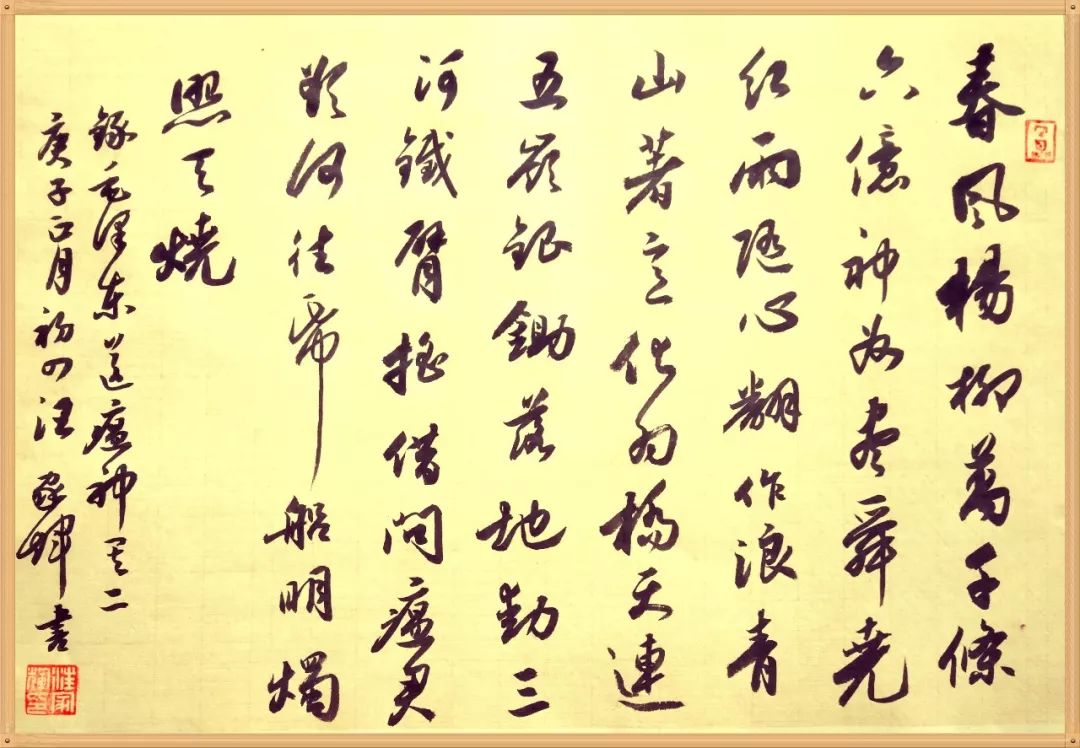 春風楊柳萬千條
六億神州尽舜堯
紅雨随心翻作浪青
山著意化为橋天連
五嶺銀鋤落地動三
河鐵臂摇借问瘟君
欲何往紙船明燭
照天燒
錄毛澤东送瘟神其二
庚子正月初四汪家輝書
汪家輝印